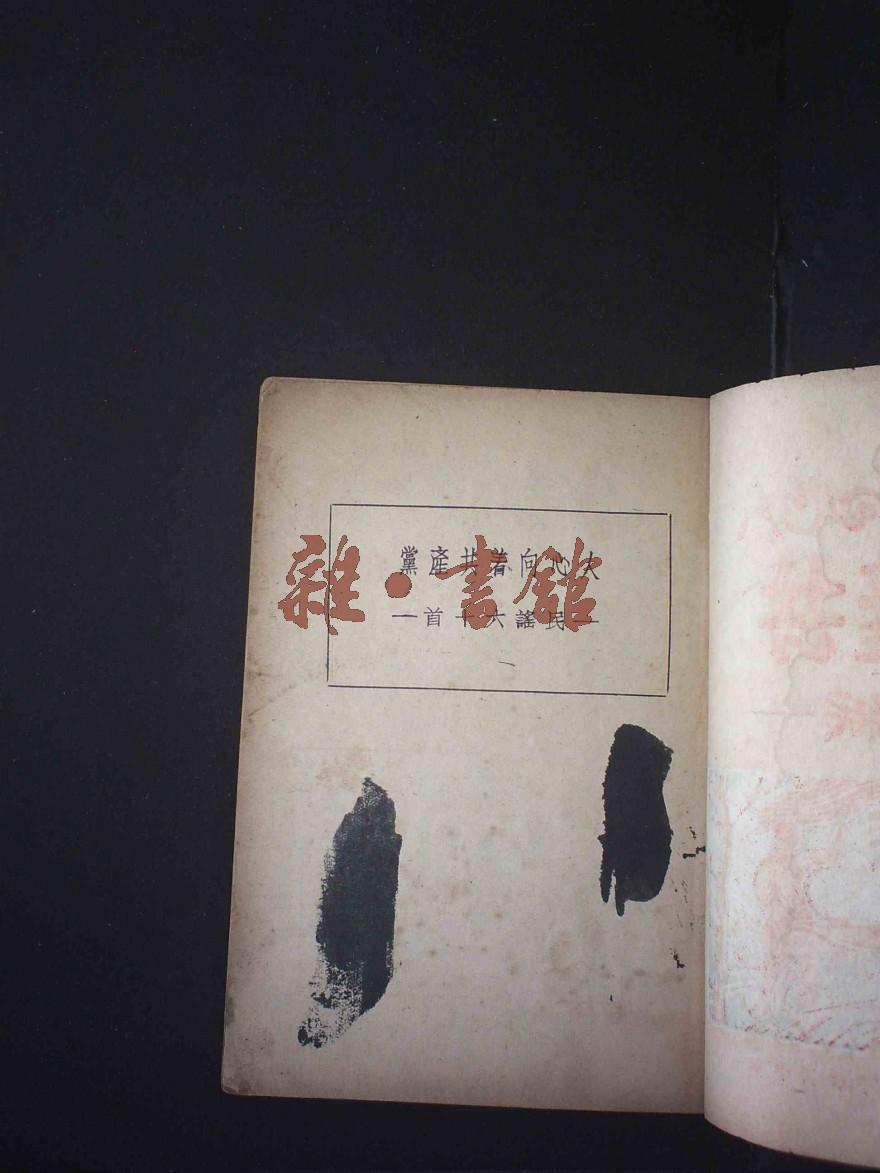 人心向着共產黨
—民謠六十首—
雜·書館